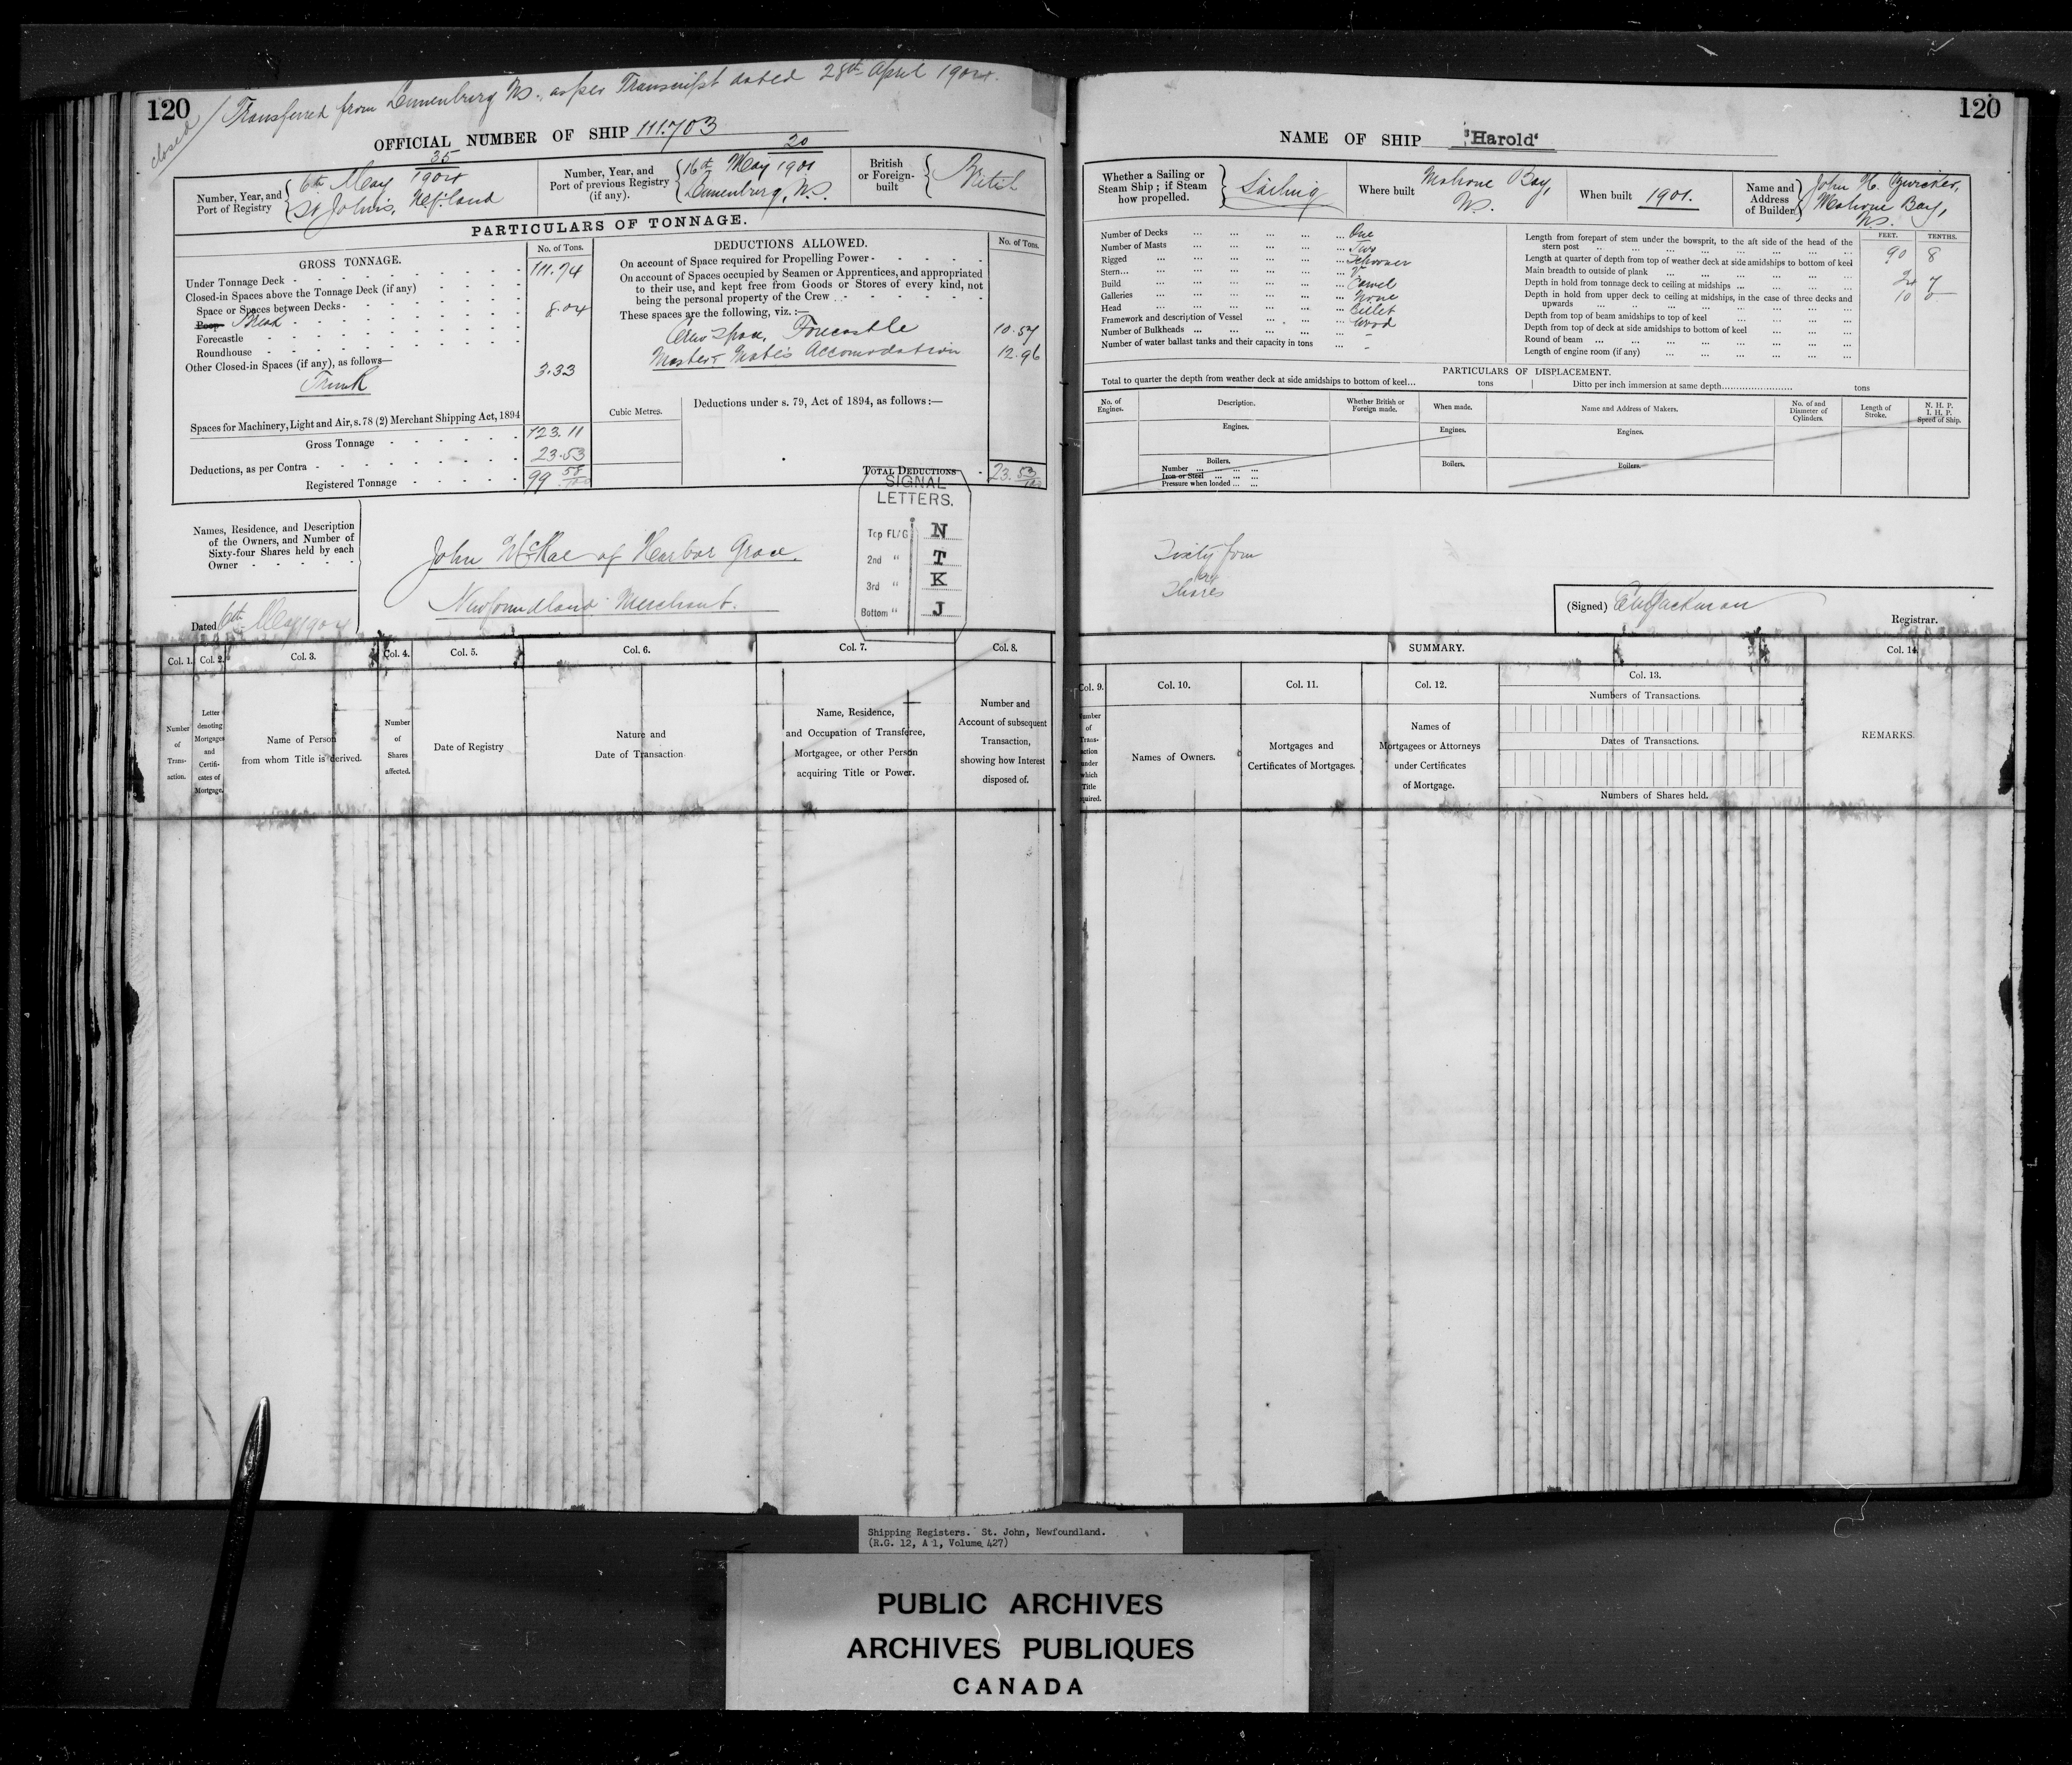 120
closed
Transferred from Lunenburg NS. as per Transcript dated 28th April 1904.
OFFICIAL NUMBER OF SHIP 111.703
Number, Year, and
Port of Registry
35
6th May 1904
St John's, Nfland
Number, Year, and
Port of previous Registry
(if any).
20
16th May 1901
Lunenburg, N.S.
British
or Foreign-
built
PARTICULARS OF TONNAGE.
GROSS TONNAGE.
No. of Tons.
Under Tonnage Deck 111.74
Closed-in Spaces above the Tonnage Deck (if any)
Space or Spaces between Decks
Poop Break 8.04
Forecastle
Roundhouse
Other Closed-in Spaces (if any), as follows—
Trunk 3.33
Spaces for Machinery, Light and Air, s. 78 (2) Merchant Shipping Act, 1894
Gross Tonnage 123.11
Deductions, as per Contra 23.53
Registered Tonnage 99 58/100
DEDUCTIONS ALLOWED.
No. of Tons.
On account of Space required for Propelling Power
On account of Spaces occupied by Seamen or Apprentices, and appropriated
to their use, and kept free from Goods or Stores of every kind, not
being the personal property of the Crew
These spaces are the following, viz. :—
Forecastle 10.57
Master & Mate's Accomodation 12.96
Cubic Metres.
Deductions under s. 79, Act of 1894, as follows :—
TOTAL DEDUCTIONS 23. 53/100
SIGNAL
LETTERS.
Top FL/G N
2nd " T
3rd " K
Bottom " J
Names, Residence, and Description
of the Owners, and Number of
Sixty-four Shares held by each
Owner
John McRae of Harbor Grace.
Newfoundland Merchant.
Dated 6th May 1904
Col. 1.
Col. 2.
Col. 3.
Col. 4.
Col. 5.
Col. 6.
Col. 7.
Col. 8.
Number
of
Trans-
action.
Letter
denoting
Mortgages
and
Certifi-
cates of
Mortgage.
Name of Person
from whom Title is derived.
Number
of
Shares
affected.
Date of Registry
Nature and
Date of Transaction
Name, Residence,
and Occupation of Transferee,
Mortgagee, or other Person
acquiring Title or Power.
Number and
Account of subsequent
Transaction,
showing how Interest
disposed of.
120
NAME OF SHIP "Harold"
Whether a Sailing or
Steam Ship ; if Steam
how propelled.
Sailing
Where built
Mahone Bay,
NS.
When built 1901.
Name and
Address
of Builder
John H. Zwicker,
Mahone Bay,
NS.
Number of Decks One
Number of Masts Two
Rigged Schooner
Stern
Build Carvel
Galleries None
Head Billet
Framework and description of Vessel Wood
Number of Bulkheads
Number of water ballast tanks and their capacity in tons
FEET. TENTHS.
Length from forepart of stem under the bowsprit, to the aft side of the head of the
stern post 90 8
Length at quarter of depth from top of weather deck at side amidships to bottom of keel
Main breadth to outside of plank 24 7
Depth in hold from tonnage deck to ceiling at midships 10 0
Depth in hold from upper deck to ceiling at midships, in the case of three decks and
upwards
Depth from top of beam amidships to top of keel
Depth from top of deck at side amidships to bottom of keel
Round of beam
Length of engine room (if any)
PARTICULARS OF DISPLACEMENT.
Total to quarter the depth from weather deck at side amidships to bottom of keel... tons
Ditto per inch immersion at same depth tons
No. of
Engines.
Description.
Whether British or
Foreign made.
When made.
Name and Address of Makers.
No. of and
Diameter of
Cylinders.
Length of
Stroke.
N. H. P.
I. H. P.
Speed of Ship.
Engines.
Engines.
Engines.
Boilers.
Number
Iron or Steel
Pressure when loaded
Boilers.
Boilers.
Sixty four
Shares
(Signed)
Registrar.
SUMMARY.
Col. 9.
Col. 10.
Col. 11.
Col. 12.
Col. 13.
Col. 14.
Number
of
Trans-
action
under
which
Title
Names of Owners.
Mortgages and
Certificates of Mortgages.
Names of
Mortgagees or Attorneys
under Certificates
of Mortgage.
Numbers of Transactions.
Dates of Transactions.
Numbers of Shares held.
REMARKS.
Shipping Registers. St. John, Newfoundland.
(R.G. 12, A 1, Volume 427)
PUBLIC ARCHIVES
ARCHIVES PUBLIQUES
CANADA